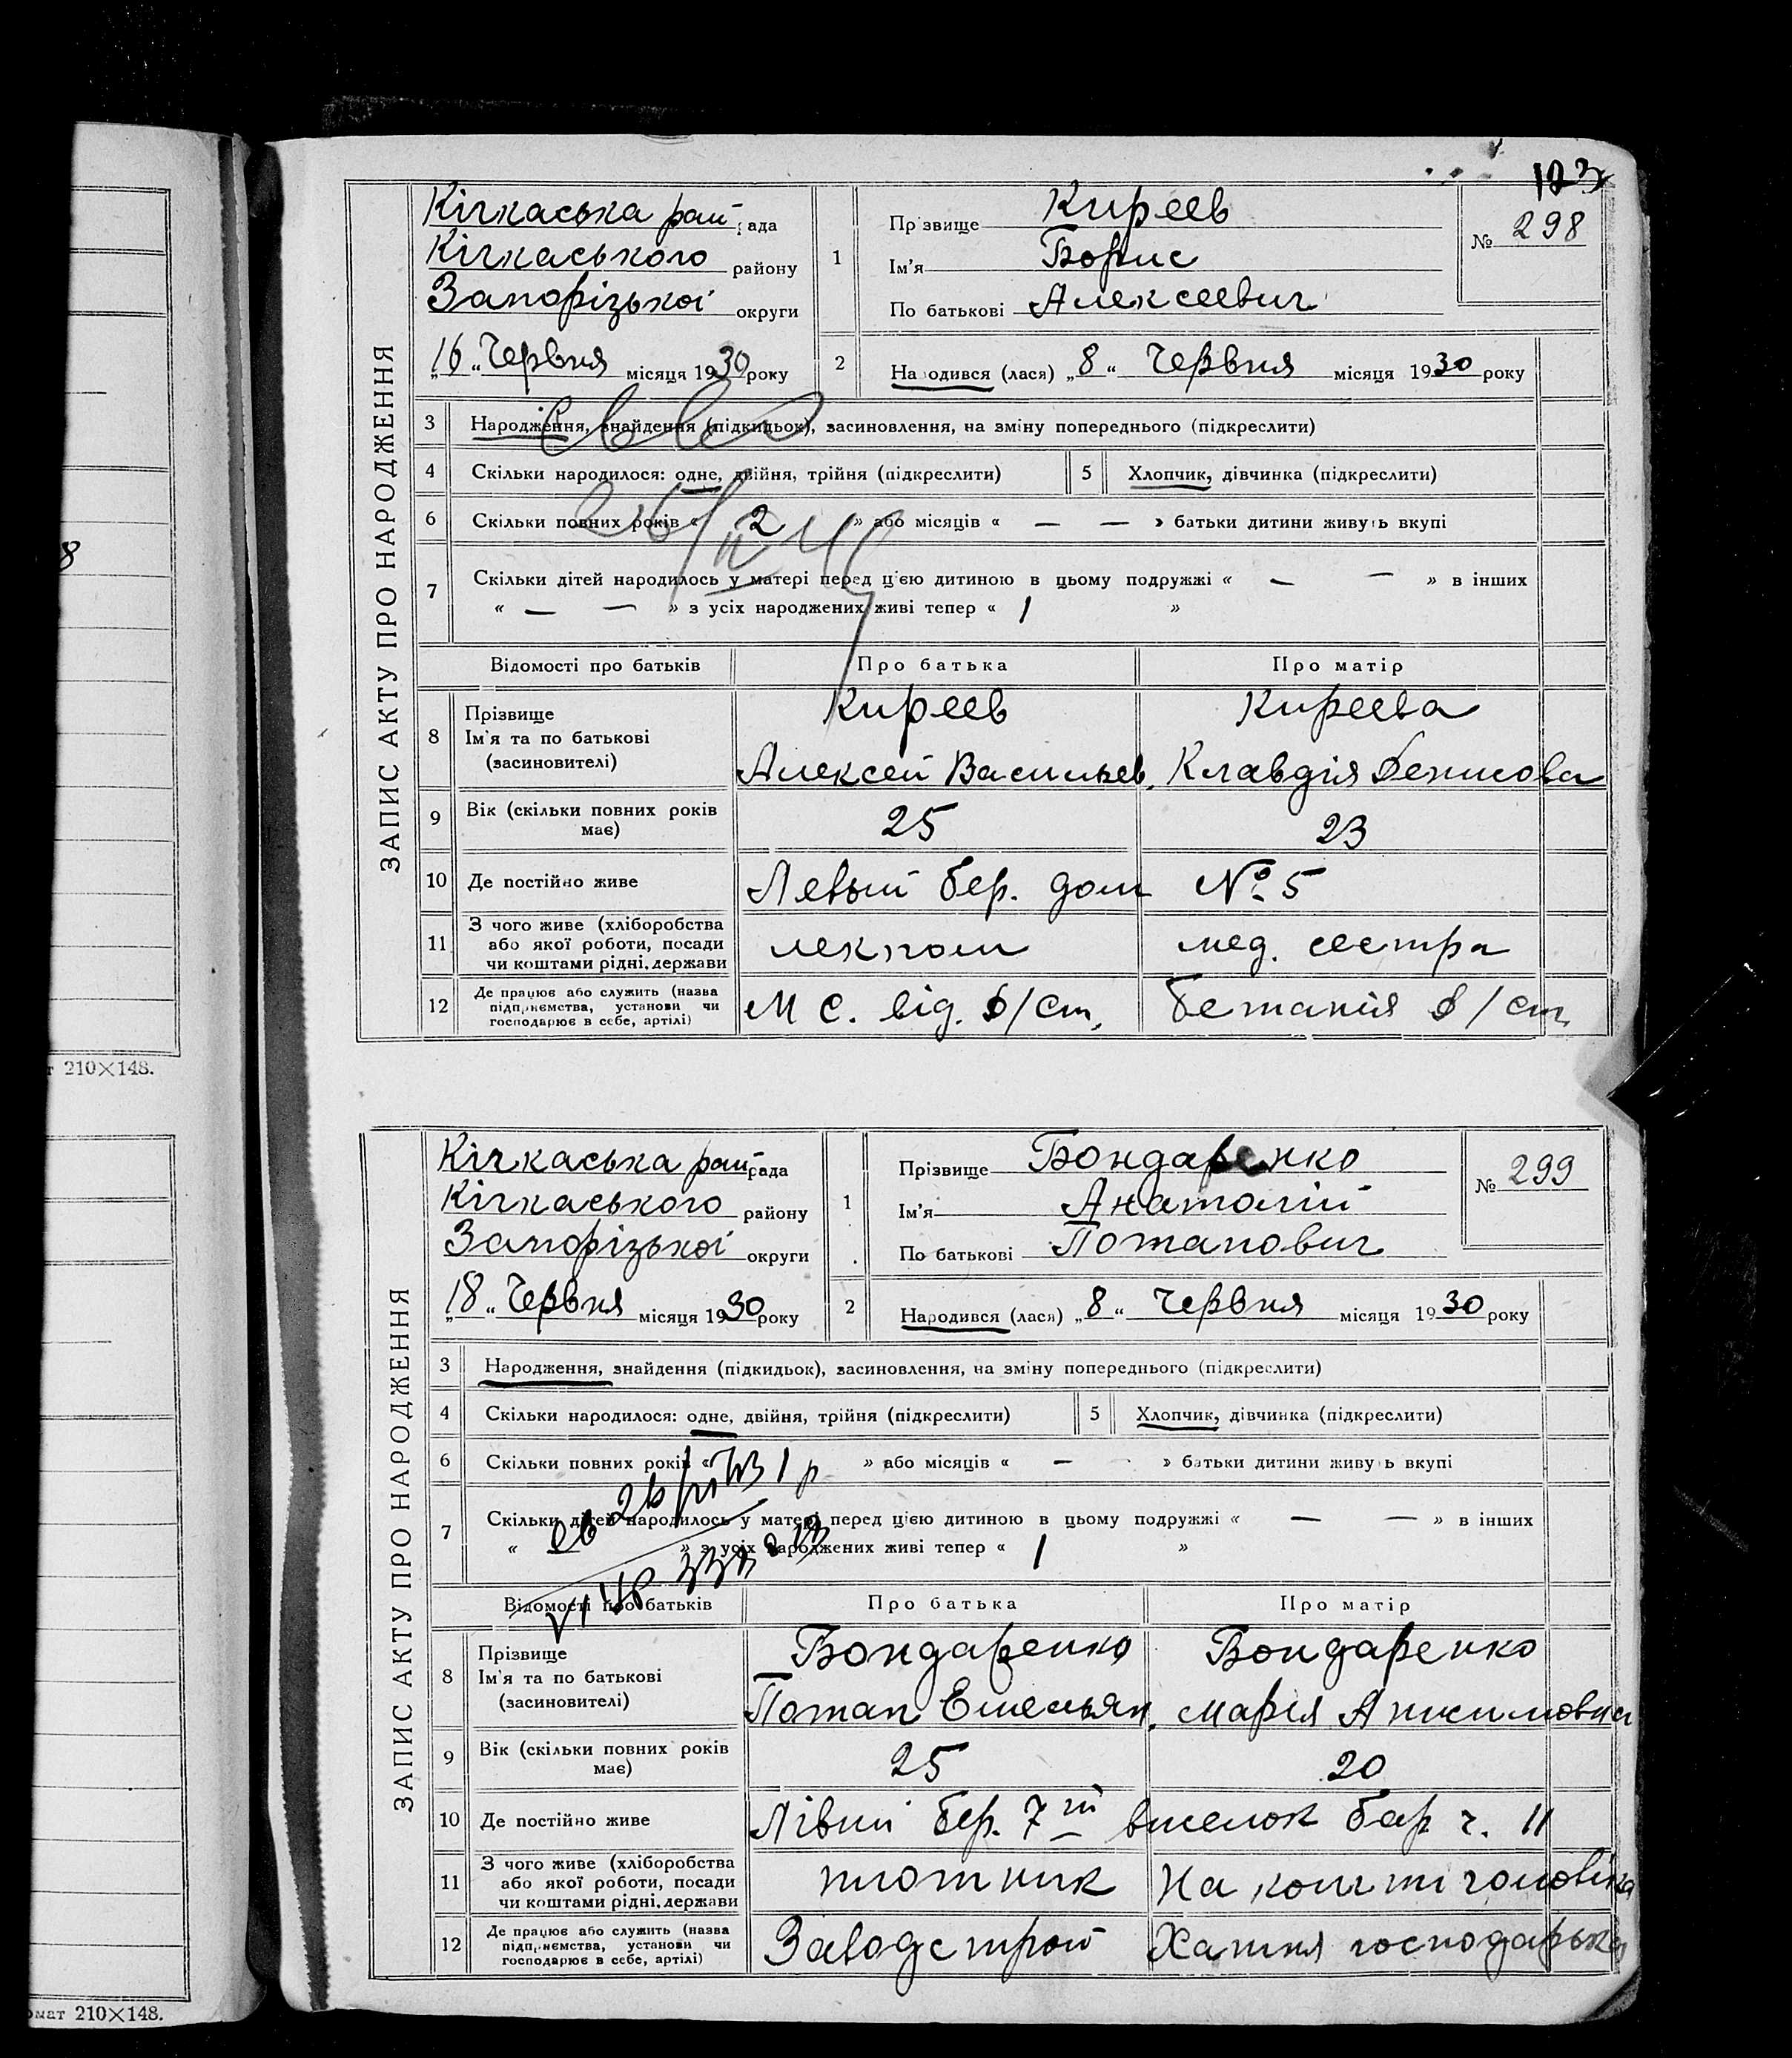 123
ЗАПИС АКТУ ПРО НАРОДЖЕННЯ
Кічкаська рай рада
Кічкаського району
Запорізької округи
„16„ Червня місяця 1930 року
1
Прізвище Киреев
Ім'я Борис
По батькові Алексеевич
№ 298
2
Народився (лася) „8“ Червня місяця 1930 року
3 Народження, знайдення (підкидьок), засиновлення, на зміну попереднього (підкреслити)
4 Скільки народилося: одне, двійня, трійня (підкреслити) 5 Хлопчик, дівчинка (підкреслити)
6 Скільки повних років « 2 » або місяців « — — » батьки дитини живуть вкупі
7 Скільки дітей народилось у матері перед цією дитиною в цьому подружжі « — — » в інших
« — — » з усіх народжених живі тепер « 1 »
Відомості про батьків Про батька Про матір
8 Прізвище Ім'я та по батькові (засиновителі)
Киреев Киреева
Алексей Васильев. Клавдія Денисова
9 Вік (скільки повних років має) 25 23
10 Де постійно живе Левый бер. дом № 5
11 З чого живе (хліборобства або якої роботи, посади чи коштами рідні, держави лекпом мед. сестра
12 Де працює або служить (назва підприємства, установи чи господарює в себе, артілі) М С. від. /ст. Бетанія /ст.
т 210×148.
8
ЗАПИС АКТУ ПРО НАРОДЖЕННЯ
Кічкаська рай рада
Кічкаського району
Запорізької округи
„18„ Червня місяця 1930 року
1
Прізвище Бондаренко
Ім'я Анатолій
По батькові Потапович
№ 299
2
Народився (лася) „8“ Червня місяця 1930 року
3 Народження, знайдення (підкидьок), засиновлення, на зміну попереднього (підкреслити)
4 Скільки народилося: одне, двійня, трійня (підкреслити) 5 Хлопчик, дівчинка (підкреслити)
6 Скільки повних років « 1 р » або місяців « — » батьки дитини живуть вкупі
7 Скільки дітей народилось у матері перед цією дитиною в цьому подружжі « — — » в інших
« » з усіх народжених живі тепер « 1 »
Відомості про батьків Про батька Про матір
8 Прізвище Ім'я та по батькові (засиновителі)
Бондаренко Бондаренко
Потап Емельян. Марія Анисимовна
9 Вік (скільки повних років має) 25 20
10 Де постійно живе Лівий бер. 7ий виселок бар ч. 11
11 З чого живе (хліборобства або якої роботи, посади чи коштами рідні, держави плотник На кошти чоловіка
12 Де працює або служить (назва підприємства, установи чи господарює в себе, артілі) Заводстрой Хатня господарька
омат 210×148.